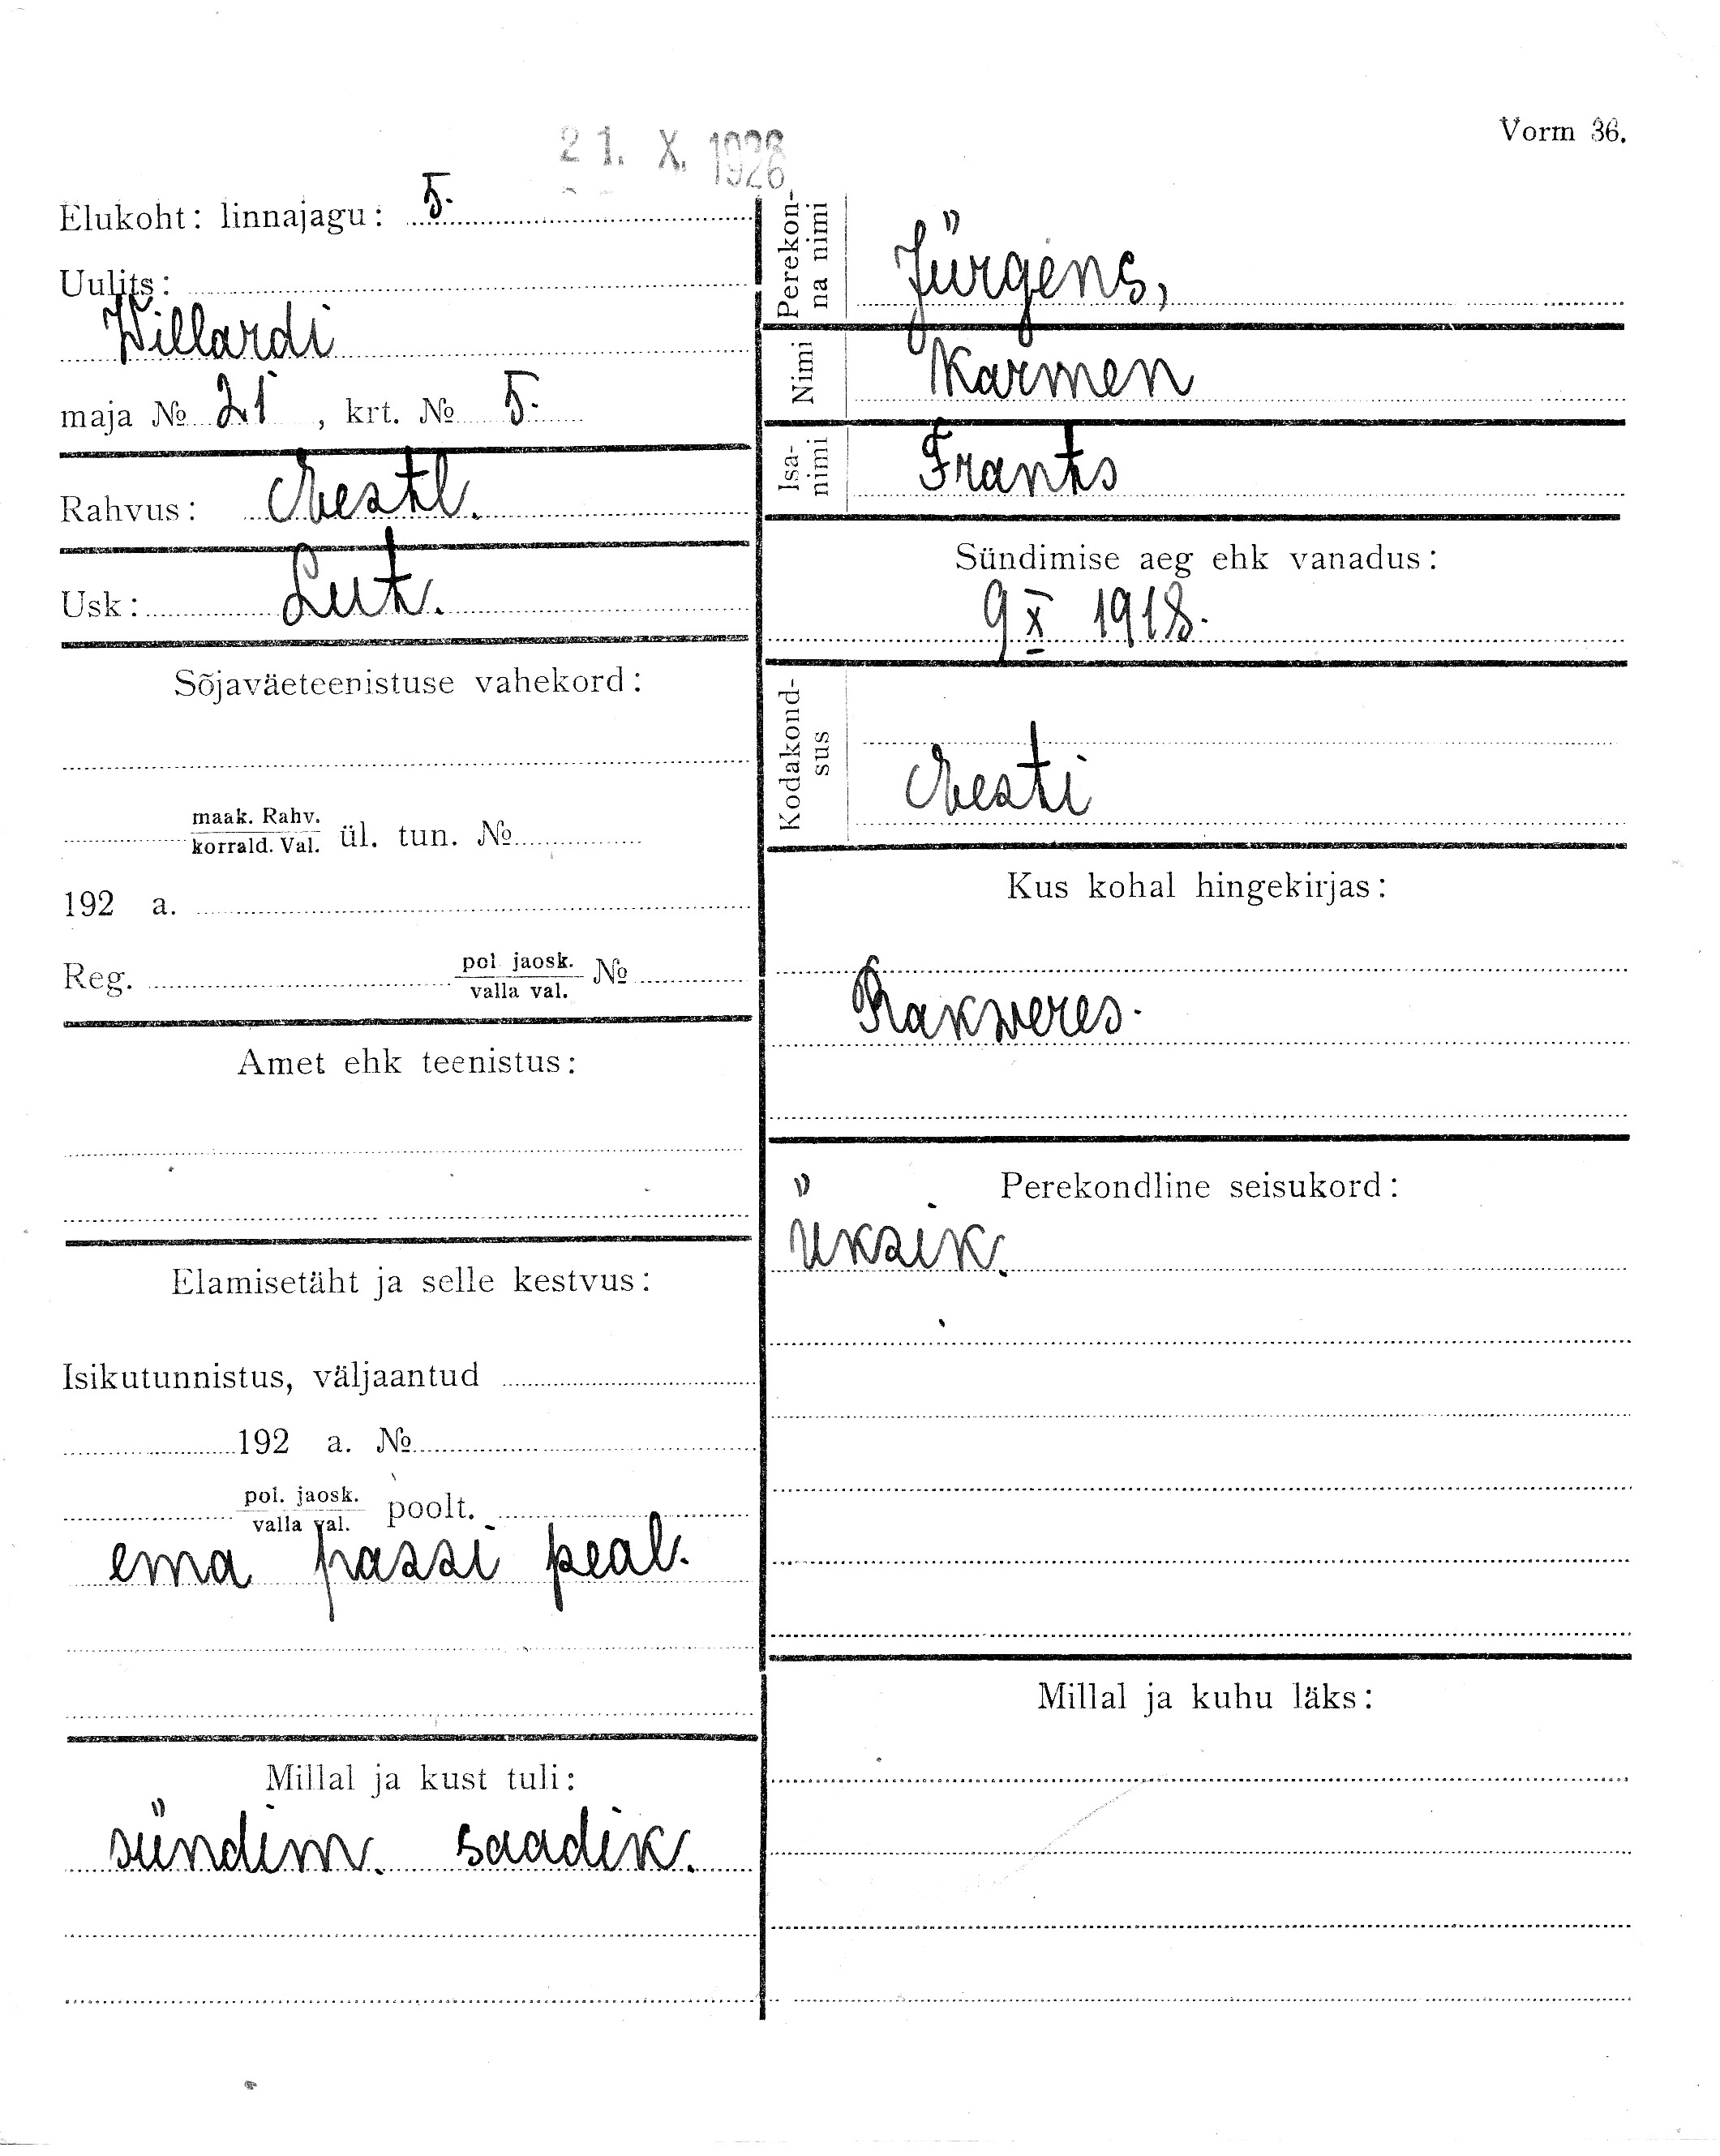 Vorm 36.
21. X. 1926
Elukoht: linnajagu: 5.
Uulits:
Willardi
maja № 21, krt. № 5.
Rahvus: Eestl.
Usk: Lut.
Sõjaväeteenistuse vahekord:
maak. Rahv.
korrald. Val. ül. tun. №
192 a.
Reg. pol. jaosk. №
valla val.
Amet ehk teenistus:
Elamisetäht ja selle kestvus:
Isikutunnistus, väljaantud
192 a. №
pol. jaosk. poolt.
valla val.
ema passi peal.
Millal ja kust tuli:
sündim. saadik.
Perekon-
na nimi
Jürgens,
Nimi
Karmen
Isa-
nimi
Frants
Sündimise aeg ehk vanadus:
9 X 1918.
Kodakond-
sus
Eesti
Kus kohal hingekirjas:
Rakweres.
Perekondline seisukord:
Üksik.
Millal ja kuhu läks: